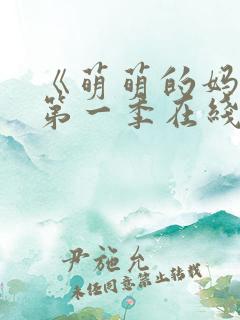 《萌萌的妈
第一季在线
尹施允
未经同意禁止转载